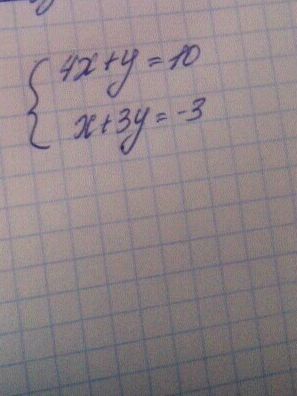 4x+y=10
x+3y=-3